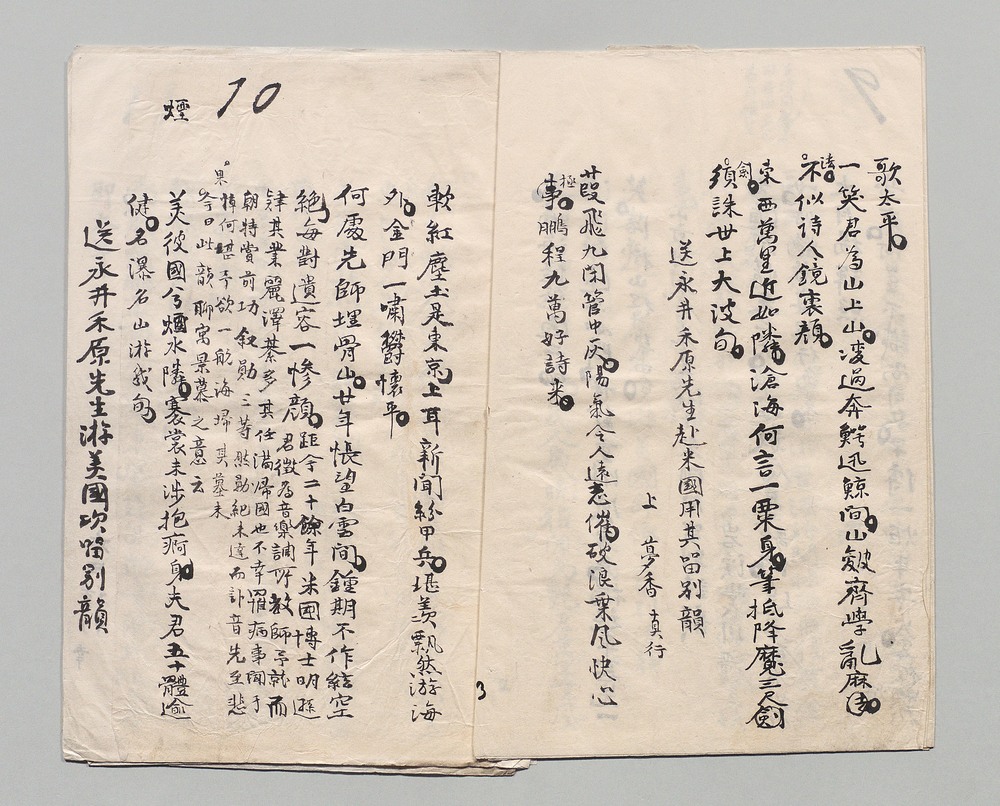 9
歌太平
一笑君為山上山凌過奔鰐迅鯨間山皴齊學乱麻
未似詩人鏡裏顔
東西萬里近如隣滄海何言一粟身筆抵降魔三尺劍
須誅世上大波旬
送永井禾原先生赴米國用其留別韻
上 夢香 真行
葭飛九閏管中灰陽氣令人遠意催破浪乗風快心
事鵬程九萬好詩来
極
3
10
軟紅塵土是東京上耳新聞紛甲兵堪羨飄然游海
外金門一嘯欝懐平
何處先師埋骨山廿年悵望白雲間鍾期不作絃空
絶毎對遺容一惨顔距今二十餘年米國博士明遜
君徴為音樂調所教師予就而
肄其業麗澤綦多其任満帰國也不幸罹病事聞于
朝特賞前功叙勲三等然勲記未達而訃音先至悲
悼何堪予欲一航海掃其墓未
果
今日此韻聊寓景慕之意云
美彼國兮烟水隣褰裳未渉抱痾身夫君五十體逾
煙
健名瀑名山游戯句
送永井禾原先生游美國次留別韻